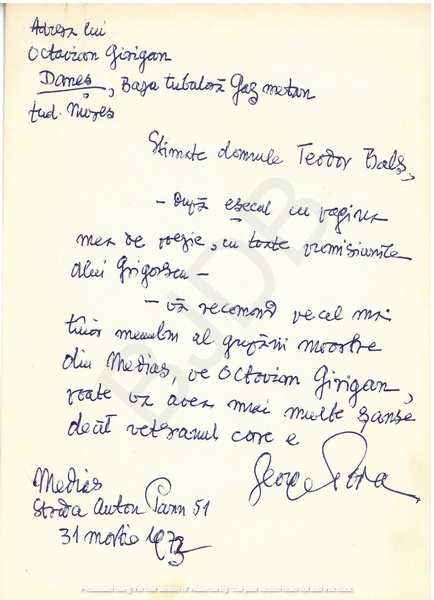 Adresa lui
Octavian Girigan
Daneș, Baza tubulară Gaz metan
jud. Mureș
Stimate domnule Teodor Balș,
- După eșecul cu pagina
mea de poezie, cu toate promisiunile
d-lui Grigorescu -
- vă recomand pe cel mai
tînăr membru al grupării noastre
din Mediaș, pe Octavian Girigan,
poate va avea mai multe șanse
decît veteranul care e
George Popa
Mediaș
Strada Anton Pann 51
31 martie 1973
BJDB